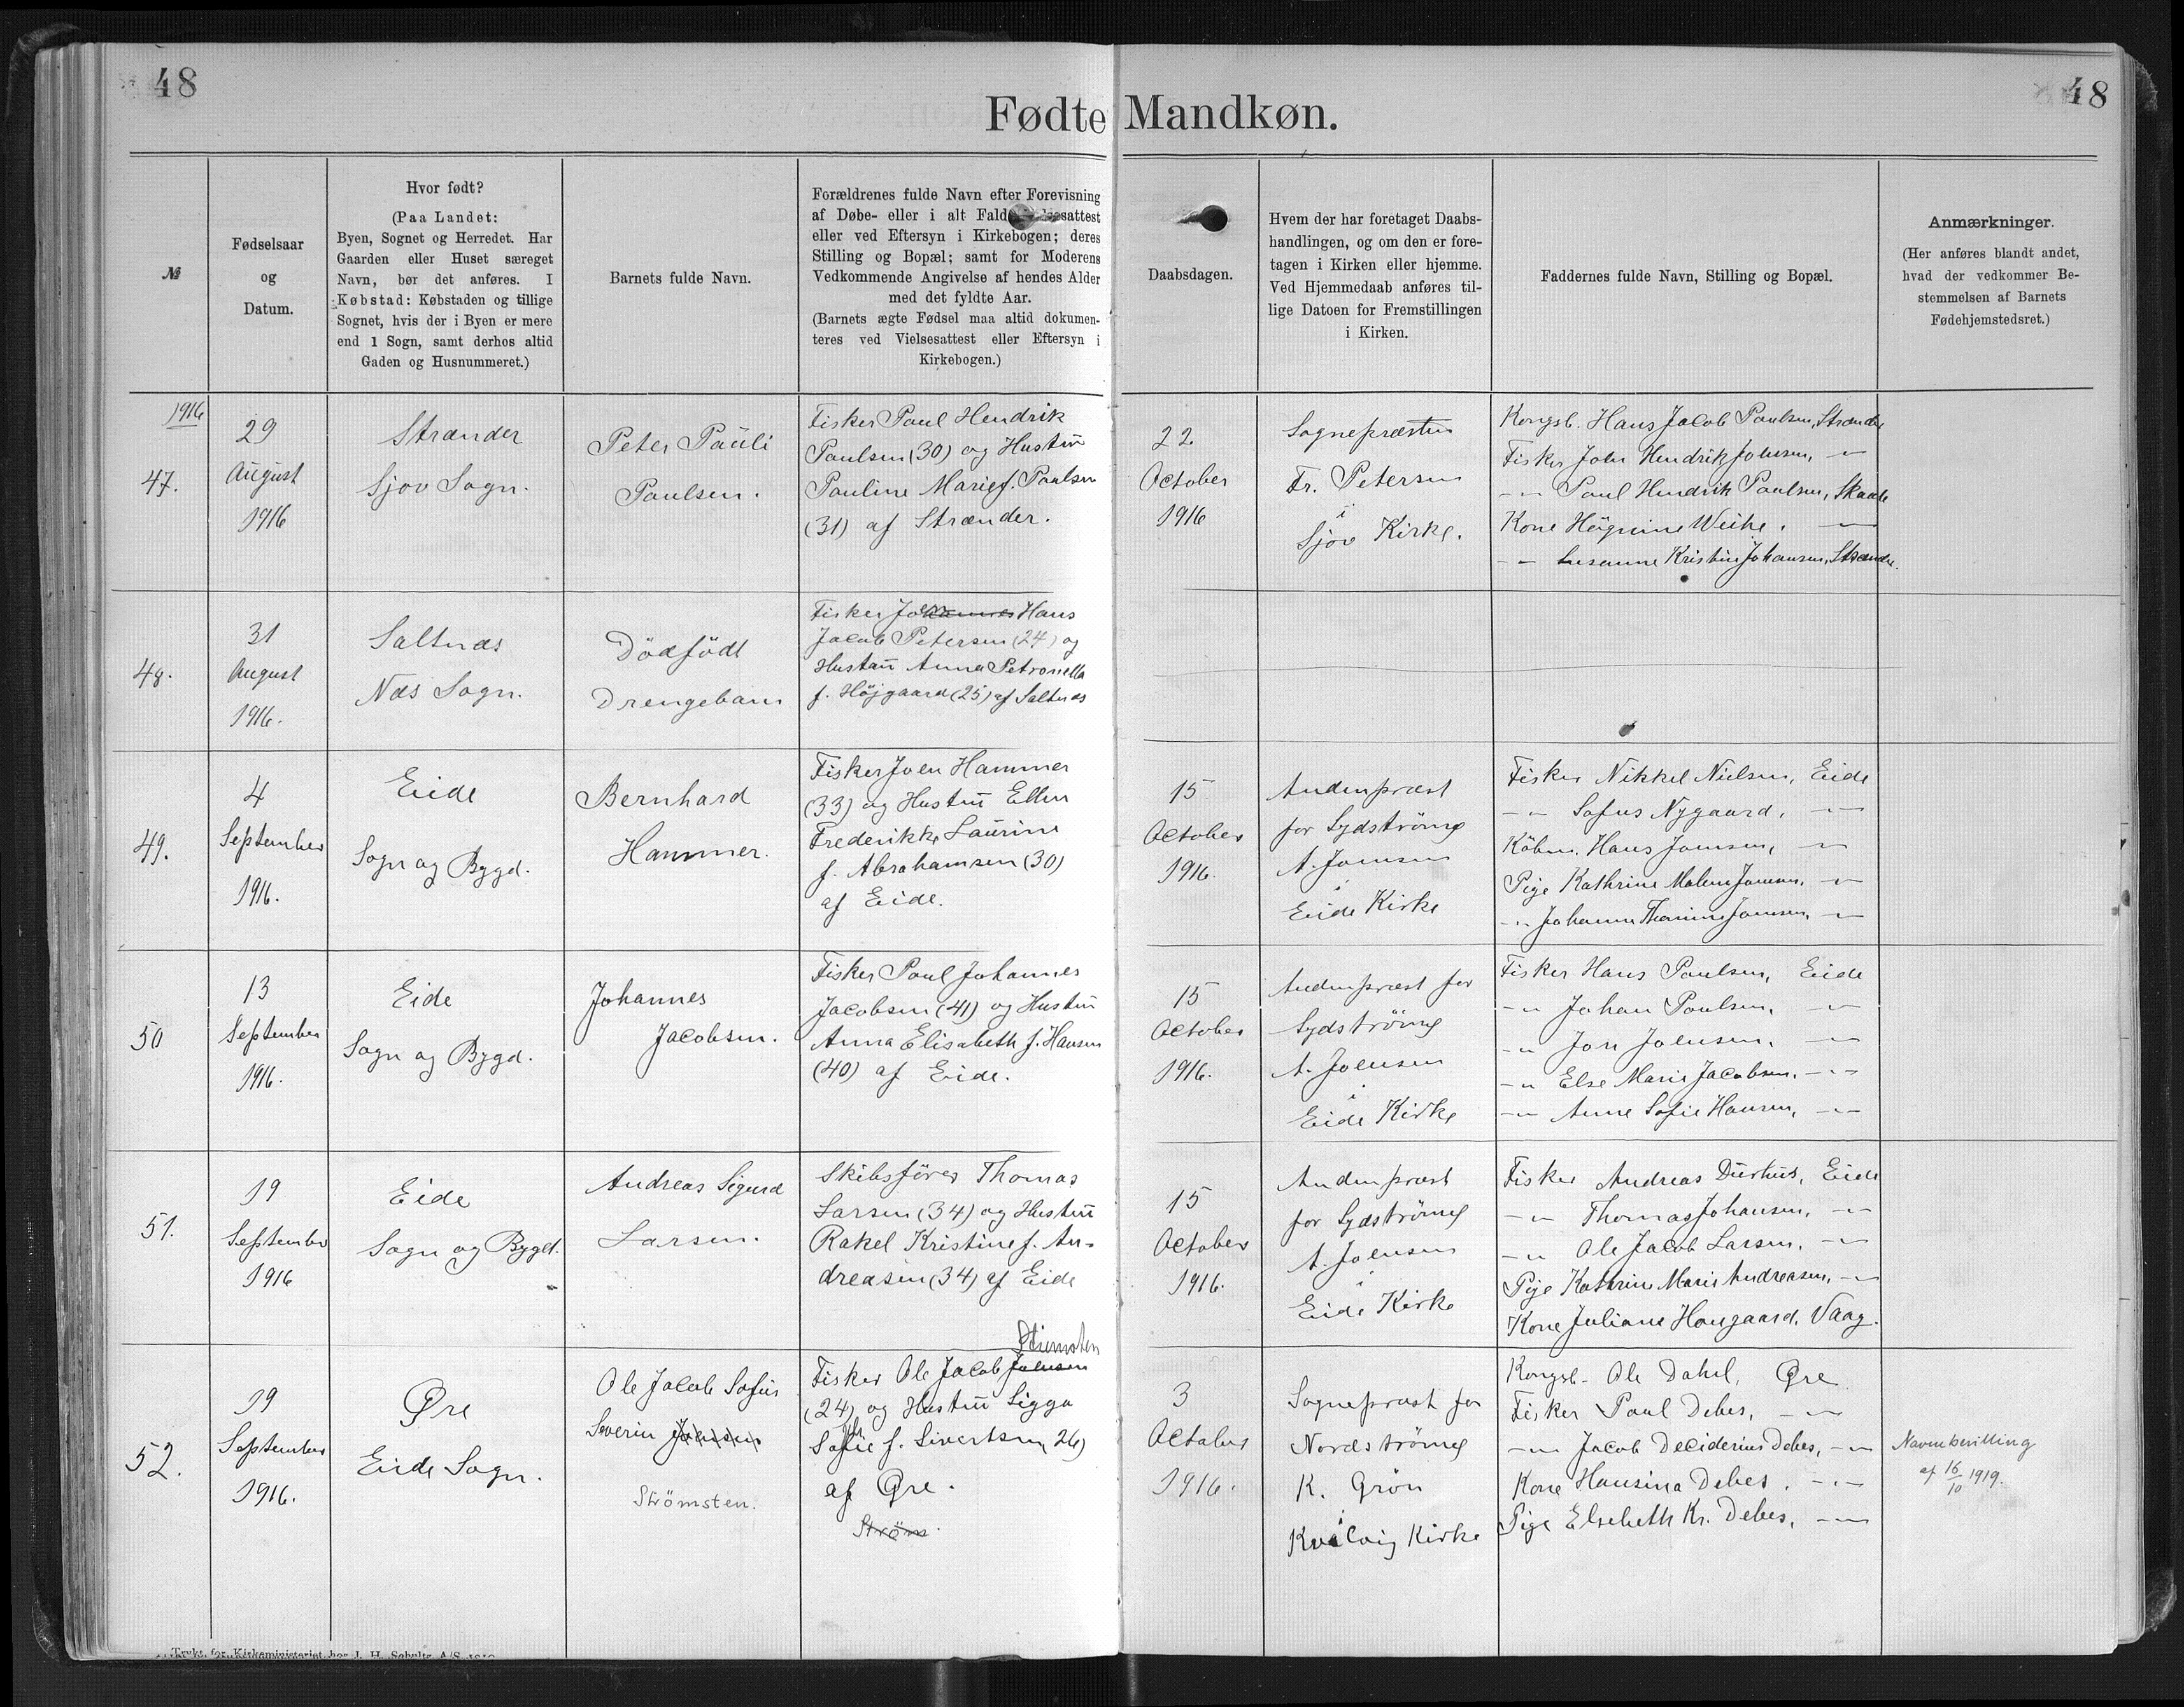 48
48
Fødte Mandkøn.
№
Fødselsaar
og
Datum.
Hvor født?
(Paa Landet:
Byen, Sognet og Herredet. Har
Gaarden eller Huset særeget
Navn, bør det anføres. I
Købstad: Købstaden og tillige
Sognet, hvis der i Byen er mere
end 1 Sogn, samt derhos altid
Gaden og Husnummeret.)
Barnets fulde Navn.
Forældrenes fulde Navn efter Forevisning
af Døbe- eller i alt Fald
eller ved Eftersyn i Kirkebogen; deres
Stilling og Bopæl; samt for Moderens
Vedkommende Angivelse af hendes Alder
med det fyldte Aar.
(Barnets ægte Fødsel maa altid dokumen-
teres ved Vielsesattest eller Eftersyn i
Kirkebogen.)
Daabsdagen.
Hvem der har foretaget Daabs-
handlingen, og om den er fore-
tagen i Kirken eller hjemme.
Ved Hjemmedaab anføres til-
lige Datoen for Fremstillingen
i Kirken.
Faddernes fulde Navn, Stilling og Bopæl.
Anmærkninger.
(Her anføres blandt andet,
hvad der vedkommer Be-
stemmelsen af Barnets
Fødehjemstedsret.)
1916
47.
29
August
1916
Strænder
Sjov Sogn.
Peter Pauli
Poulsen.
Fisker Poul Hendrik
Poulsen (30) og Hustru
Pauline Marie f. Poulsen
(31) af Strænder.
22
October
1916
Sognepræsten
Fr. Petersen
i
Sjov Kirke.
Kongsb. Hans Jacob Poulsen, Strænder
Fisker Joen Hendrik Joensen, -"-
-"- Poul Hendrik Poulsen, Skaale
Kone Høgnine Weihe. -"-
-"- Susanne Kristine Johansen, Strænder.
48.
31
August
1916.
Saltnæs
Næs Sogn.
Dödfödt
Drengebarn
Fisker Johannes Hans
Jacob Petersen (24) og
Hustru Anna Petronella
f. Höjgaard (25) af Saltnæs
49.
4
September
1916.
Eide
Sogn og Bygd.
Bernhard
Hammer.
Fisker Joen Hammer
(33) og Hustru Ellen
Frederikke Laurine
f. Abrahamsen (30)
af Eide.
15
October
1916.
Andenpræst
for Sydströmø
A. Joensen
i
Eide Kirke
Fisker Nikkel Nielsen, Eide
-"- Sofus Nygaard, -"-
Købm. Hans Joensen, -"-
Pige Kathrine Malene Joensen, -"-
-"- Johanne Thomine Joensen, -"-
50
13
September
1916.
Eide
Sogn og Bygd.
Johannes
Jacobsen.
Fisker Poul Johannes
Jacobsen (41) og Hustru
Anna Elisabeth f. Hansen
(40) af Eide.
15
October
1916.
Andenpræst for
Sydströmø
A. Joensen
i
Eide Kirke
Fisker Hans Poulsen, Eide
-"- Johan Poulsen, -"-
-"- Jon Joensen, -"-
-"- Else Marie Jacobsen, -"-
-"- Anne Sofie Hansen, -"-
51.
19
September
1916
Eide
Sogn og Bygd.
Andreas Sigurd
Larsen.
Skibsförer Thomas
Larsen (34) og Hustru
Rakel Kristine f. An-
dreasen (34) af Eide
15
October
1916.
Andenpræst
for Sydströmø
A. Joensen
i
Eide Kirke
Fisker Andreas Durhus, Eide
-"- Thomas Johansen, -"-
-"- Ole Jacob Larsen, -"-
Pige Kathrine Marie Andreasen, -"-
Kone Juliane Hougaard, Vaag.
52.
19
September
1916.
Øre
Eide Sogn.
Ole Jacob Sofus
Severin Joensen
Strömsten.
Strømsten
Fisker Ole Jacob Joensen
(24) og Hustru Sigga
Sofie f. Sivertsen, 26)
af Øre.
Ström
3
October
1916.
Sognepræst for
Nordströmø
K. Grön
i
Kvalvig Kirke
Kongsb. Ole Dahl, Øre
Fisker Poul Debes, -"-
-"- Jacob Deciderius Debes, -"-
Kone Hansina Debes. -"-
Pige Elsebeth Kr. Debes, -"-
Navnebevilling
af 16/10 1919.